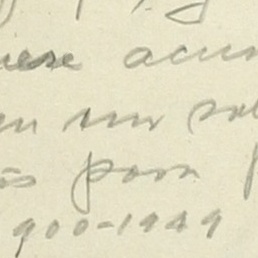 iese acum
en un sol
os para
900-1949